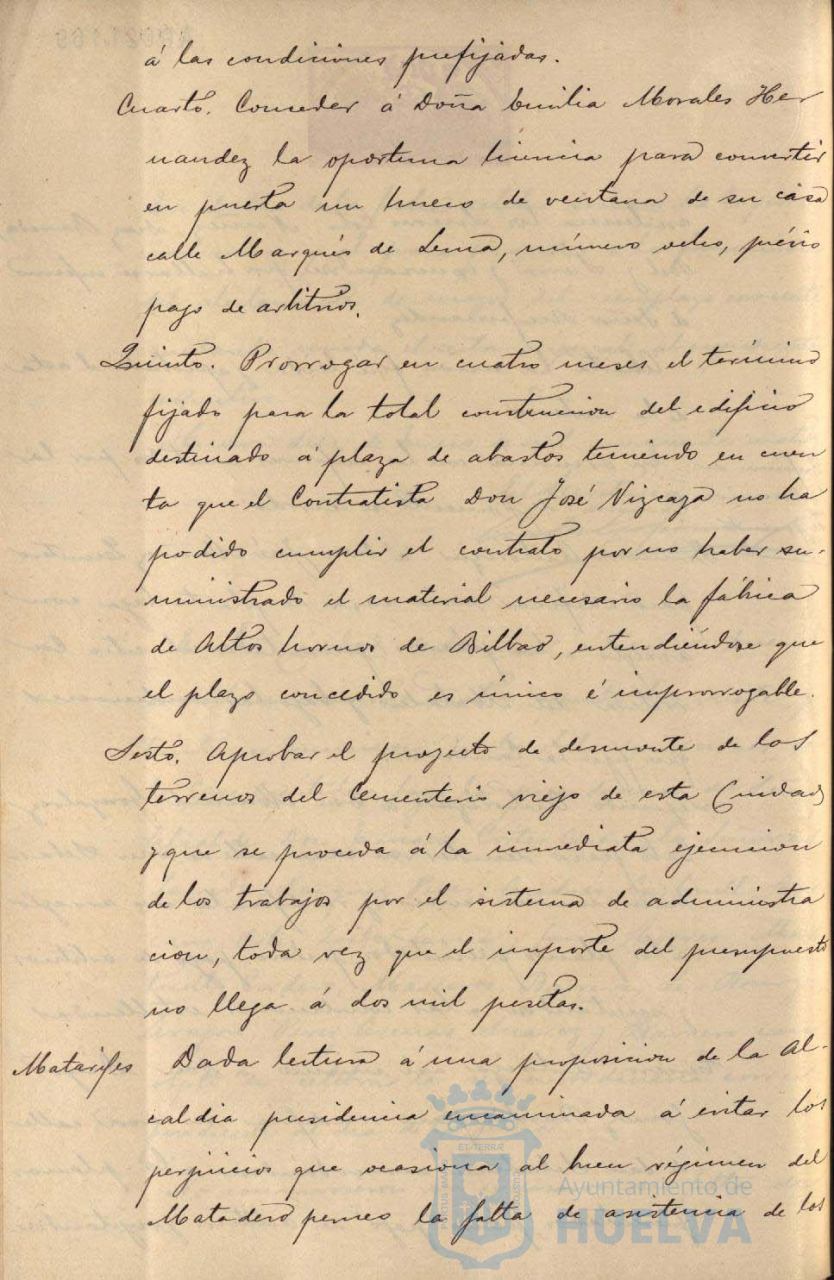 á las condiciones prefijadas.
Cuarto. Conceder á Doña Emilia Morales Her
nandez la oportuna licencia para convertir
en puerta un hueco de ventana de su casa
calle Marqués de Lema, número ocho, prévio
pago de arbitrios.
Quinto. Prorrogar en cuatro meses el término
fijado para la total construccion del edificio
destinado á plaza de abastos teniendo en cuen
ta que el Contratista Don José Vizcaya no ha
podido cumplir el contrato por no haber su-
ministrado el material necesario la fábrica
de Altos hornos de Bilbao, entendiéndose que
el plazo concedido es único é improrrogable.
Sesto. Aprobar el proyecto de desmonte de los
terrenos del Cementerio viejo de esta Ciudad
y que se proceda á la inmediata ejecucion
de los trabajos por el sistema de administra
cion, toda vez que el importe del presupuesto
no llega á dos mil pesetas.
Matarifes Dada lectura á una proposicion de la Al-
caldia presidencia encaminada á evitar los
perjuicios que ocasiona al buen régimen del
Matadero la falta de asistencia de los
Ayuntamiento de
HUELVA